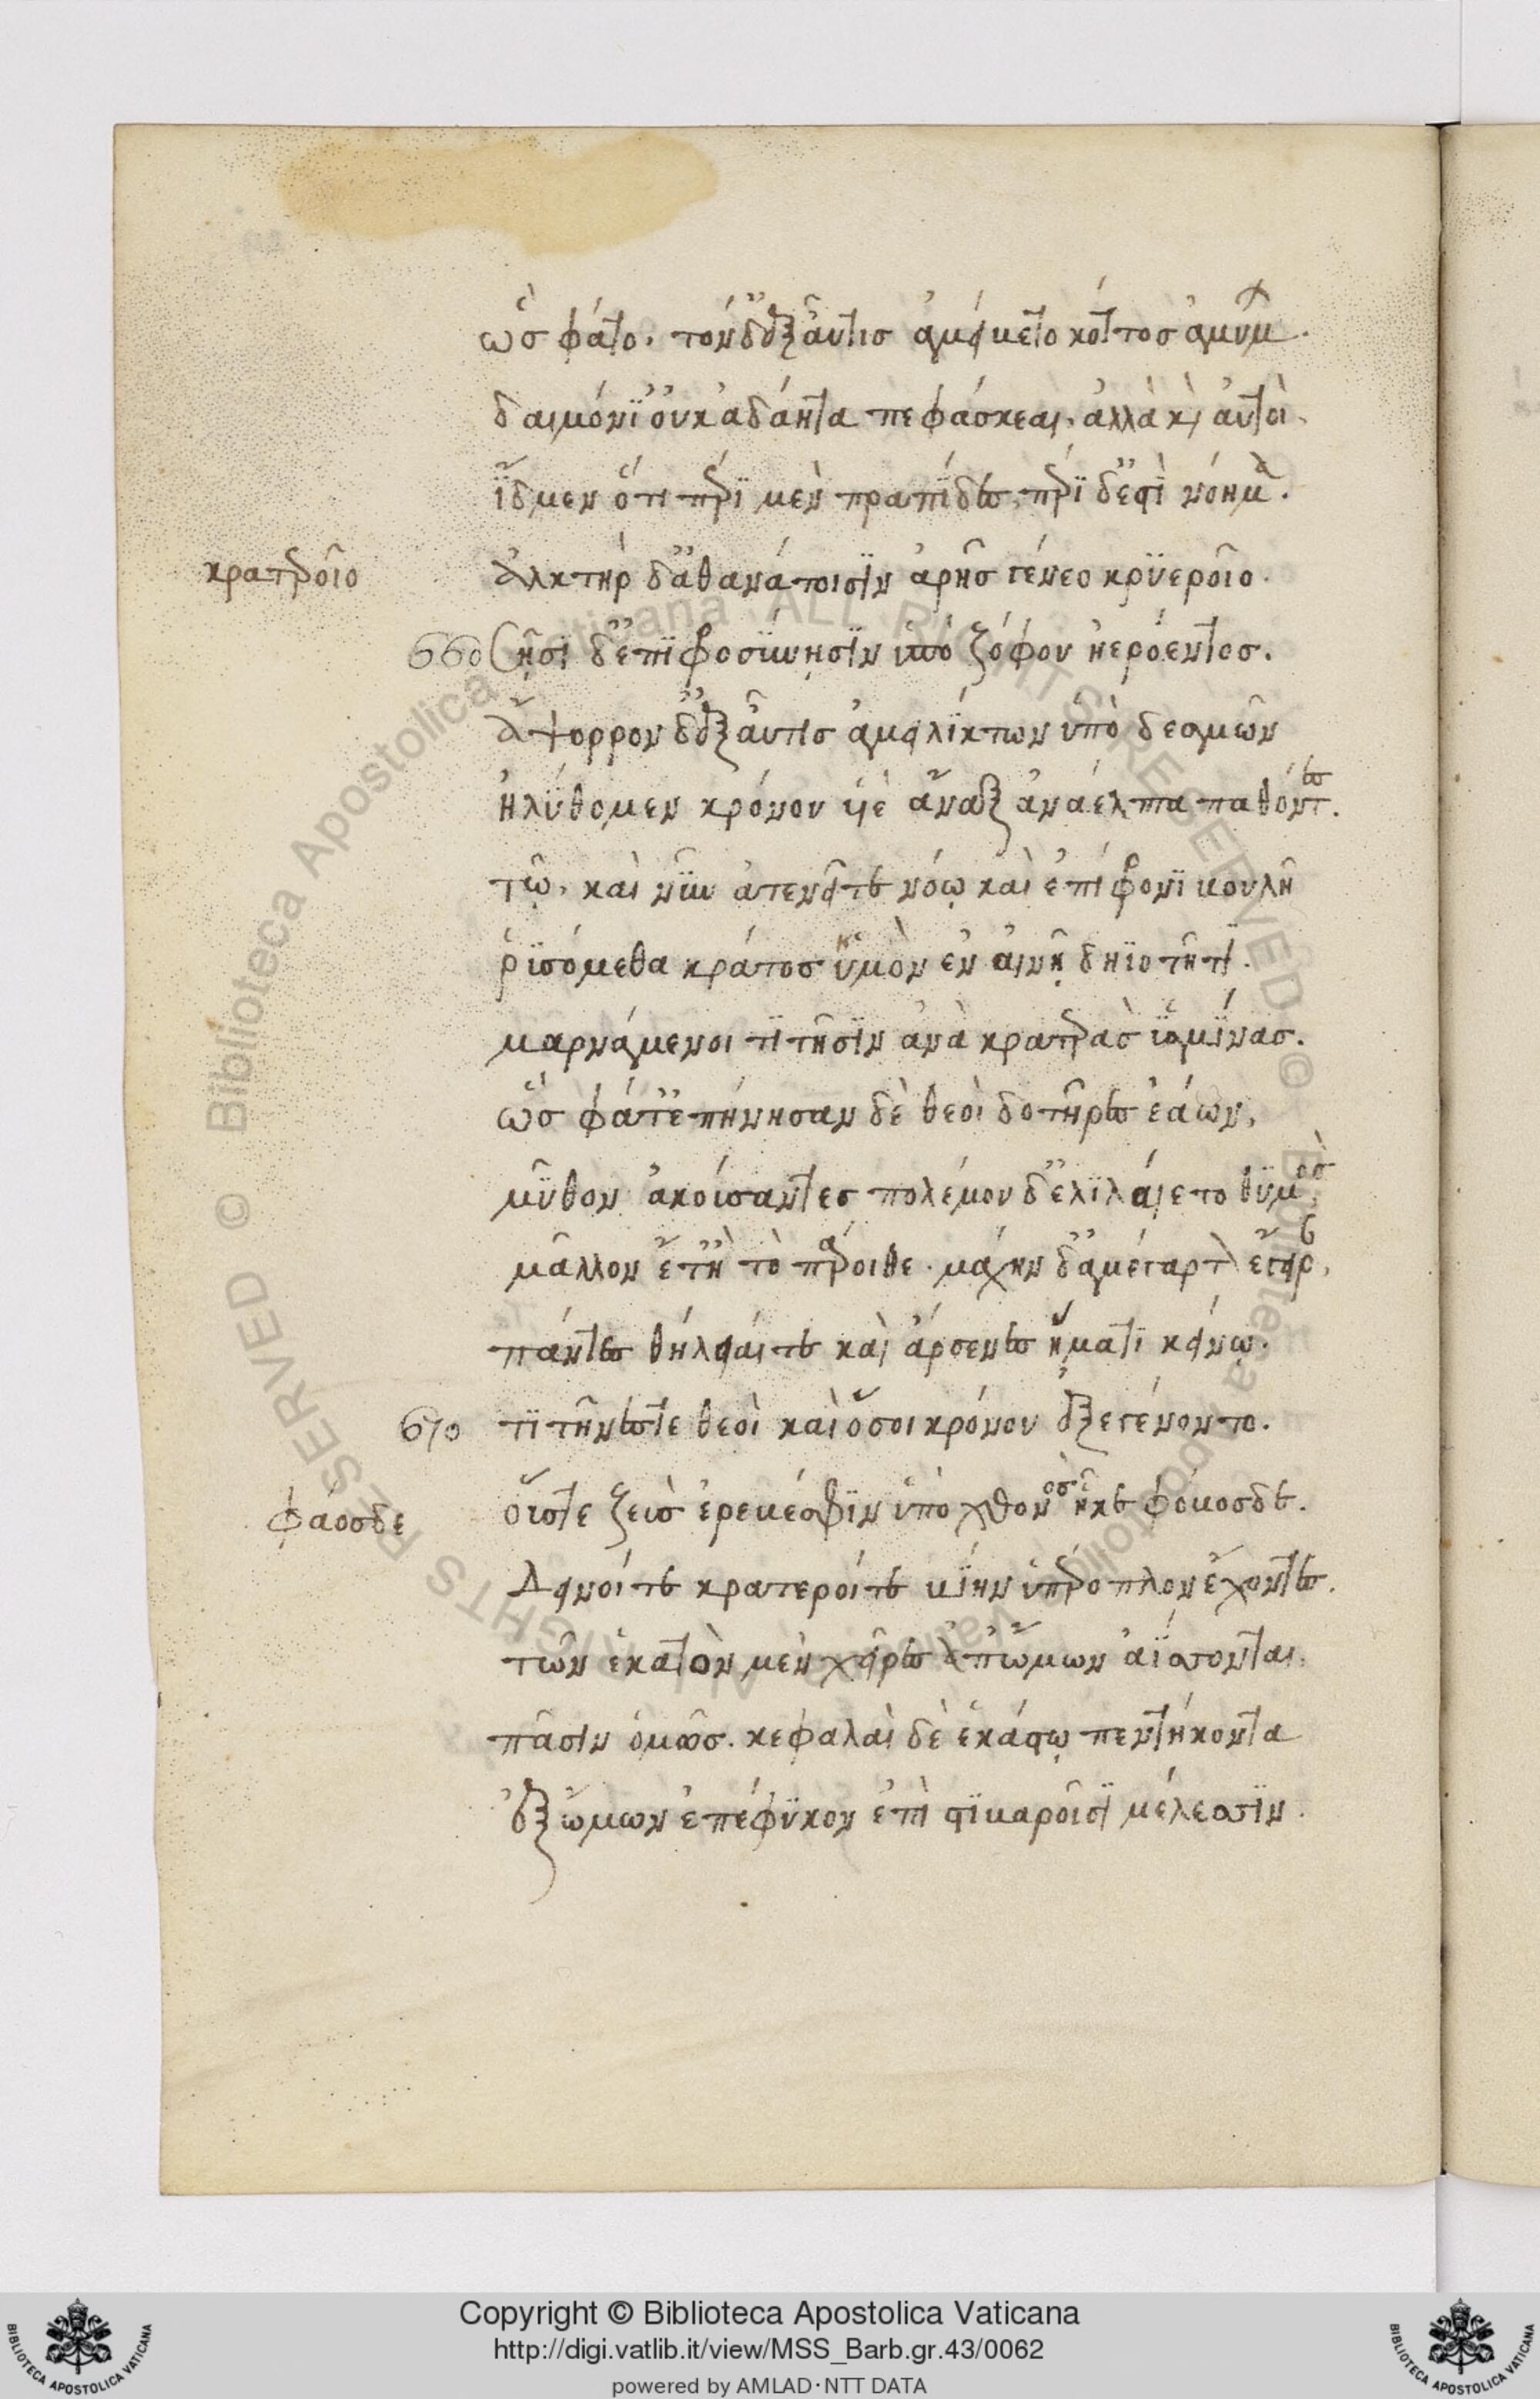 ὣς φάτο. τὸν δ' ἐξαῦτις ἀμείβετο κόττος ἀμύμ.
δαιμόνι' οὐκ ἀδάητα πεφάσκεαι. ἀλλὰ κὶ αὐτοὶ.
ἴδμεν ὅτι περὶ μὲν πραπίδες, περὶ δ' ἐστὶ νόημα.
κρατεροῖο
ἀλκτὴρ δ' ἀθανάτοισιν ἀρῆς γένεο κρυεροῖο.
660 σῆσι δ' ἐπιφροσύνησιν ὑπὸ ζόφου ἠερόεντος.
ἄψορρον δ' ἐξαῦτις ἀμειλίκτων ὑπὸ δεσμῶν
ἠλύθομεν κρόνου υἱὲ ἄναξ ἀνάελπτα παθόντες.
τῷ. καὶ νῦν ἀτενεῖ τε νόῳ καὶ ἐπίφρονι βουλῇ
ῥυσόμεθα κράτος ὑμὸν ἐν αἰνῇ δηϊοτῆτι.
μαρνάμενοι τιτῆσιν ἀνὰ κρατερὰς ὑσμίνας.
ὣς φάτ' ἐπήνησαν δὲ θεοὶ δοτῆρες ἐάων,
μῦθον ἀκούσαντες πολέμου δ' ἐλιλάιετο θυμὸς,
μᾶλλον ἔτ' ἢ τὸ πάροιθε. μάχην δ' ἀμέγαρτον ἔγειρ,
πάντες θήλειαί τε καὶ ἄρσενες ἤματι κείνῳ.
670 τιτῆνές τε θεοὶ καὶ ὅσοι κρόνου ἐξεγένοντο.
φάοσδε
οὕς τε ζεὺς ἐρεβέσφιν ὑπὸ χθονὸς ἧκε φόωσδε.
Δεινοί τε κρατεροί τε βίην ὑπέροπλον ἔχοντες.
τῶν ἑκατὸν μὲν χεῖρες ἀπ' ὤμων ἀΐσσονται.
πᾶσιν ὁμῶς. κεφαλαὶ δὲ ἑκάστῳ πεντήκοντα
ἐξ ὤμων ἐπέφυκον ἐπὶ στιβαροῖσι μέλεσσιν.
© Biblioteca Apostolica Vaticana ALL RIGHTS RESERVED © Biblioteca Apostolica Vaticana ALL RIGHTS RESERVED
BIBLIOTECA APOSTOLICA VATICANA
Copyright © Biblioteca Apostolica Vaticana
http://digi.vatlib.it/view/MSS_Barb.gr.43/0062
powered by AMLAD·NTT DATA
BIBLIOTECA APOSTOLICA VATICANA